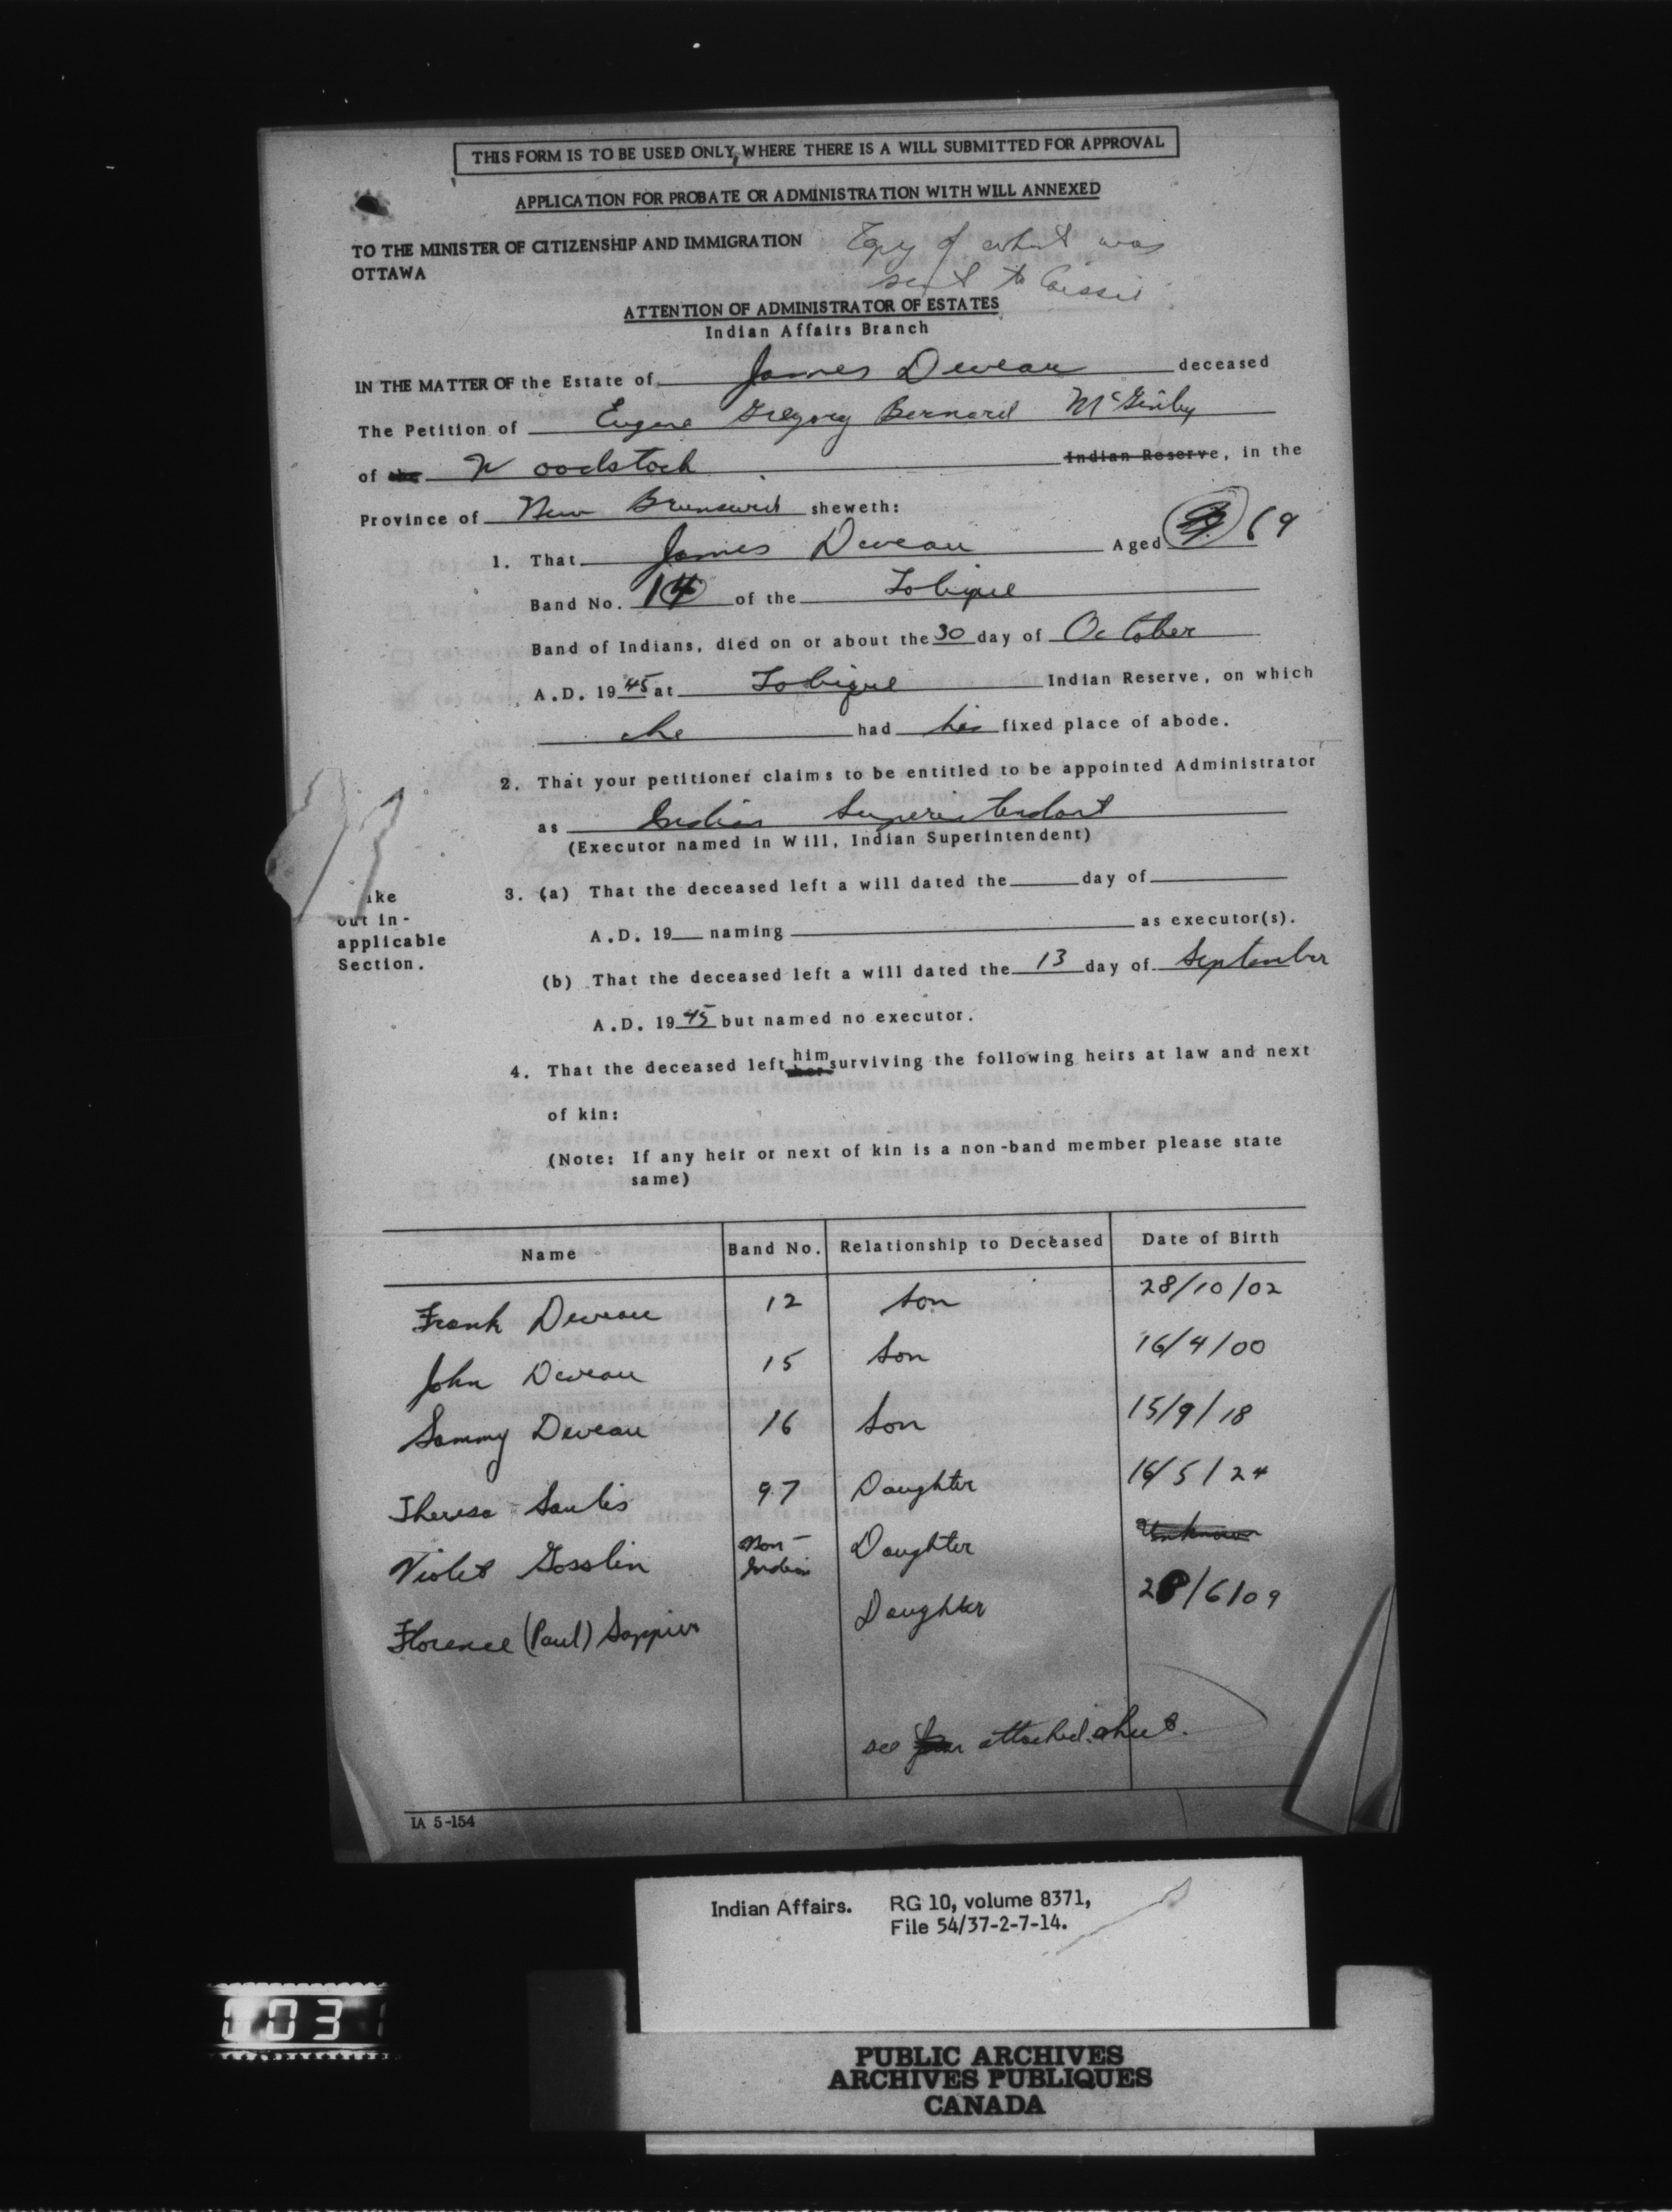 THIS FORM IS TO BE USED ONLY, WHERE THERE IS A WILL SUBMITTED FOR APPROVAL
APPLICATION FOR PROBATE OR ADMINISTRATION WITH WILL ANNEXED
TO THE MINISTER OF CITIZENSHIP AND IMMIGRATION Copy of what was
OTTAWA sent to
ATTENTION OF ADMINISTRATOR OF ESTATES
Indian Affairs Branch
IN THE MATTER OF the Estate of James Deveau deceased
The Petition of Eugene Gregory Bernard McGinley
of the Woodstock Indian Reserve, in the
Province of New Brunswick sheweth:
1. That James Deveau Aged 69
Band No. 14 of the Tobique
Band of Indians, died on or about the 30 day of October
A.D. 19 45 at Tobique Indian Reserve, on which
he had his fixed place of abode.
2. That your petitioner claims to be entitled to be appointed Administrator
as Indian Superintendant
(Executor named in Will, Indian Superintendent)
3. (a) That the deceased left a will dated the day of
A.D. 19 naming as executor(s).
ike
out in-
applicable
Section.
(b) That the deceased left a will dated the 13 day of September
A.D. 19 45 but named no executor.
4. That the deceased left him her surviving the following heirs at law and next
of kin:
(Note: If any heir or next of kin is a non-band member please state
same)
Name Band No. Relationship to Deceased Date of Birth
Frank Deveau 12 Son 28/10/02
John Deveau 15 Son 16/4/00
Sammy Deveau 16 Son 15/9/18
Theresa Saulis 97 Daughter 16/5/24
Violet Gosslin Non-Indian Daughter Unknown
Florence (Paul) Sappier Daughter 28/6/09
see attached sheet.
IA 5-154
Indian Affairs. RG 10, volume 8371,
File 54/37-2-7-14.
0031
PUBLIC ARCHIVES
ARCHIVES PUBLIQUES
CANADA